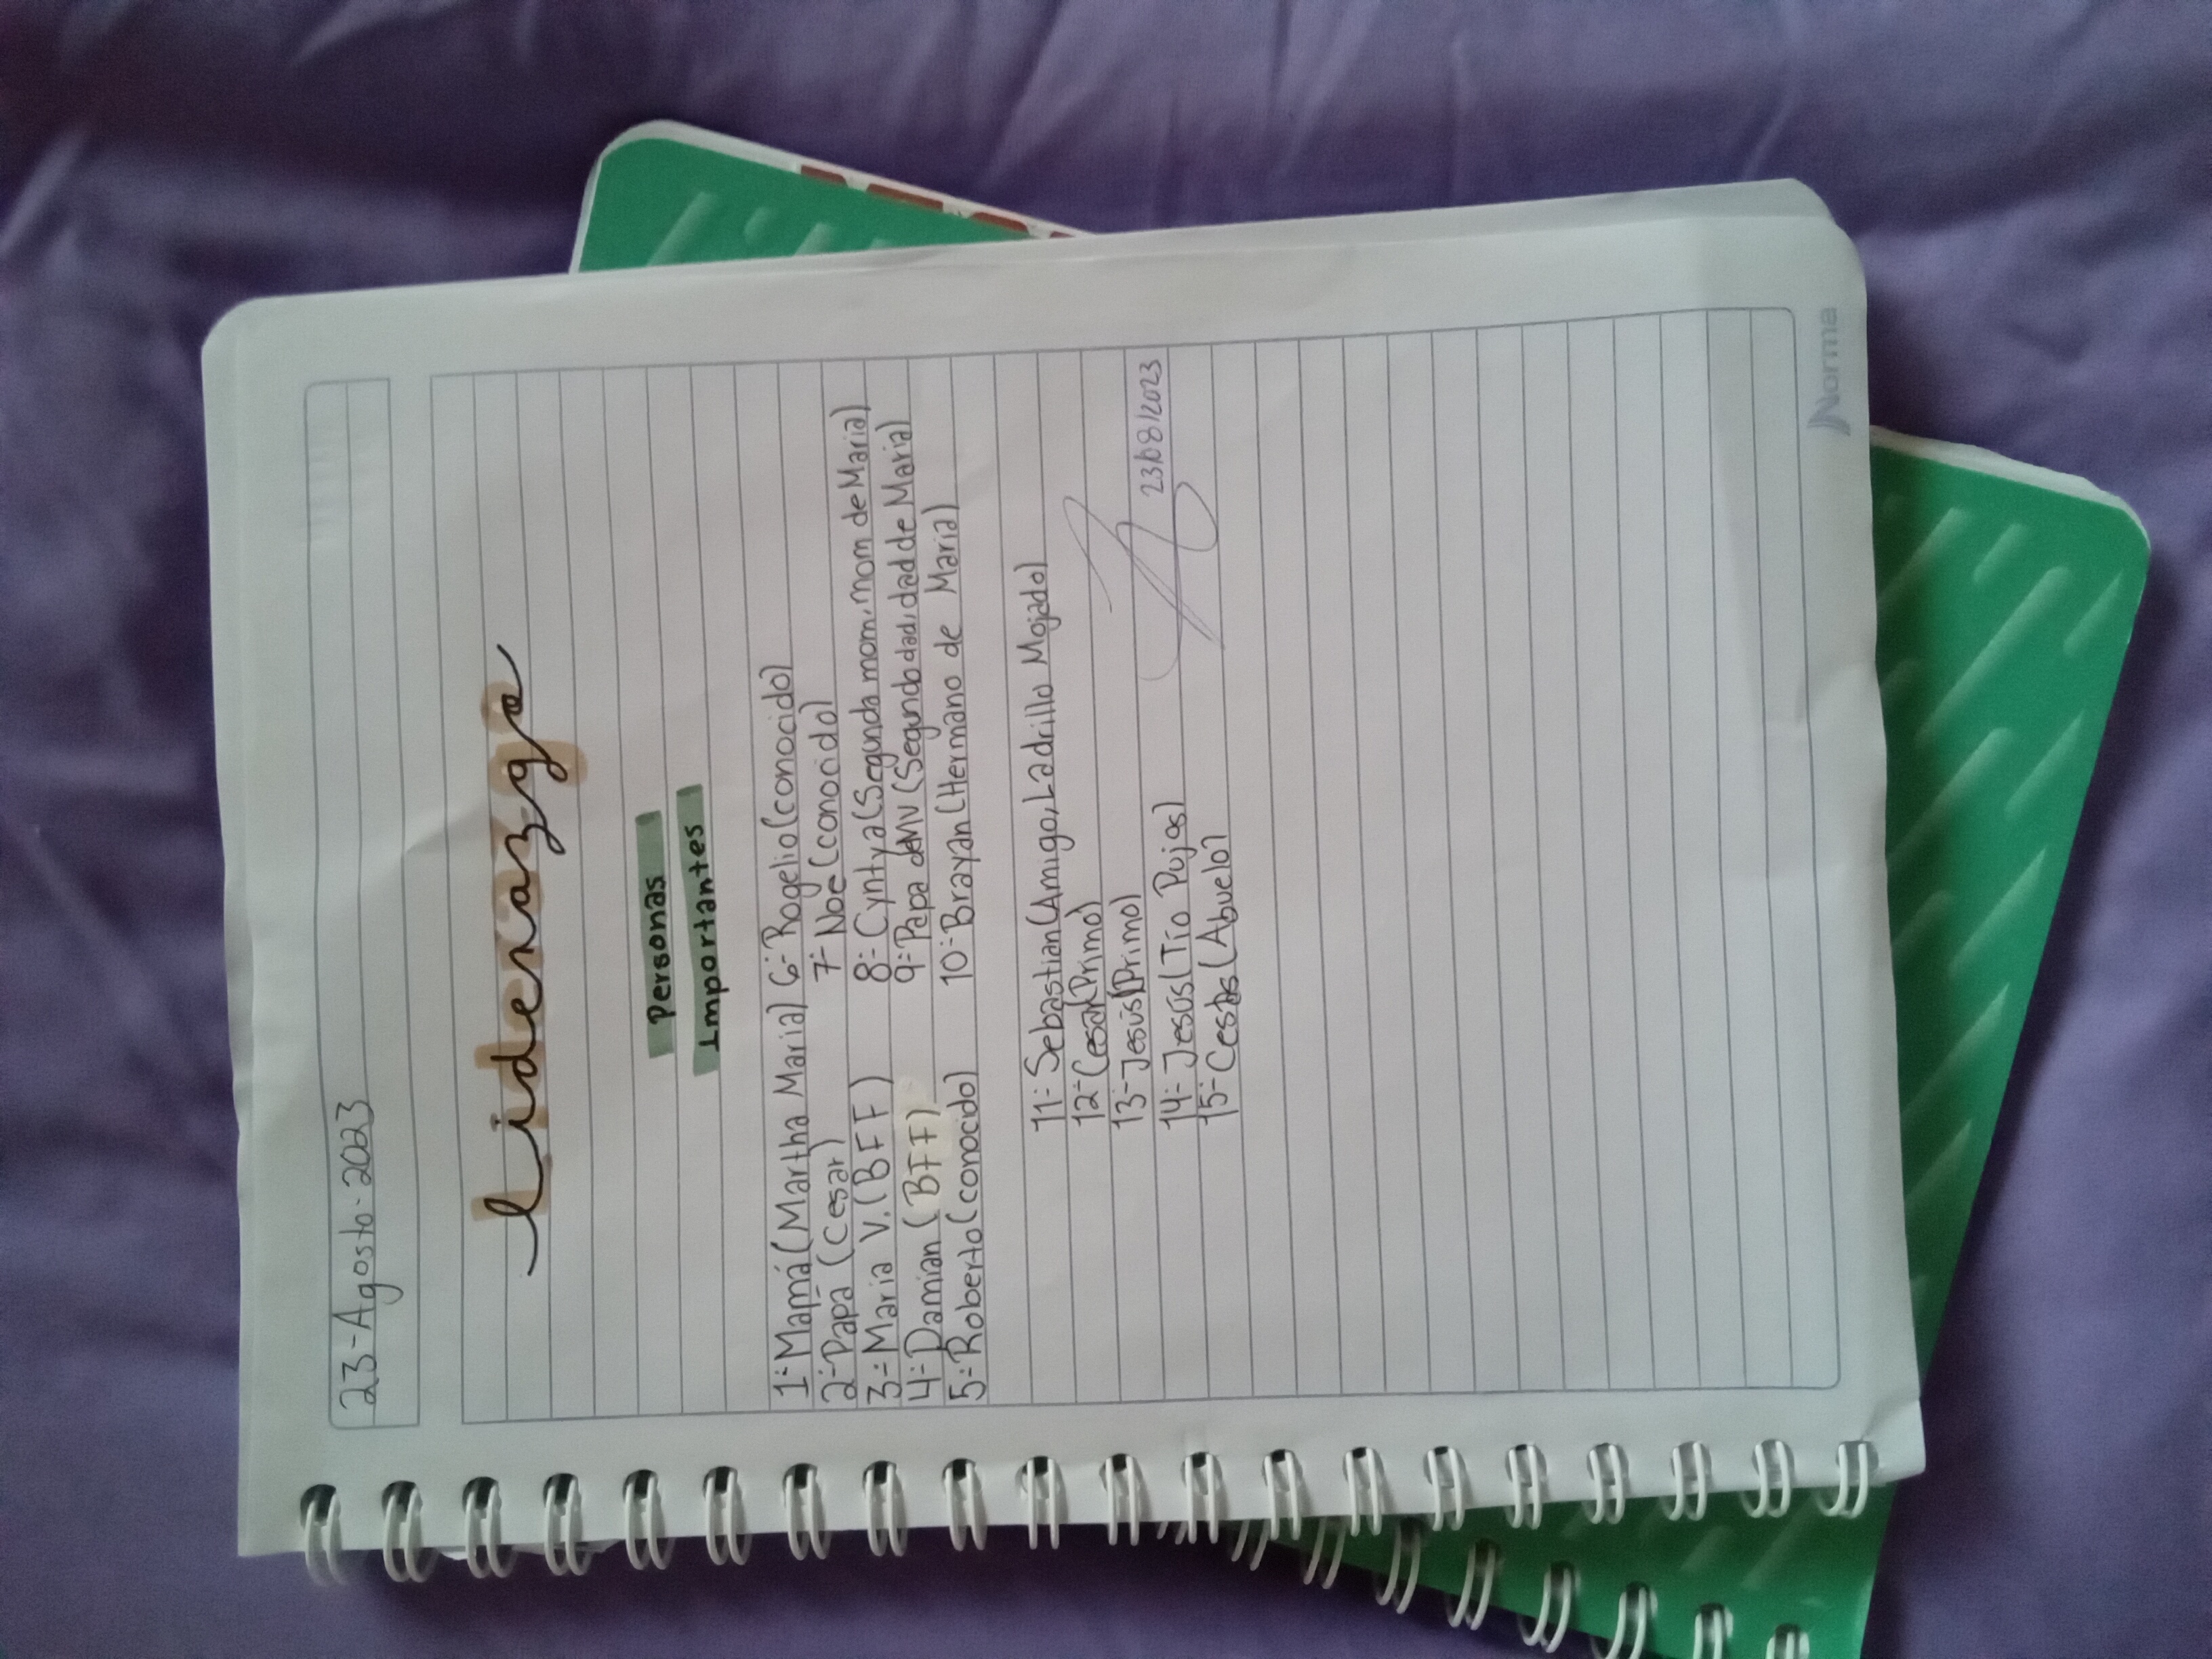 23-Agosto-2023
Lidenazgo
Personas
Importantes
1-Mamá(Martha Maria)
2-Papá(Cesar)
3-Maria V.(BFF)
4-Damian(BFF)
5-Roberto(conocido)
6-Rogelio(conocido)
7-Noe(conocido)
8-Cyntya(Segunda mom, mom de Maria)
9-Papa deMV(Segundo dad, dad de Maria)
10-Brayan(Hermano de Maria)
11-Sebastian(Amigo, Ladrillo Mojado)
12-Cesar(Primo)
13-Jesús(Primo)
14-Jesús(Tío Pujas)
15-(Abuelo)
23/08/2023
Norma